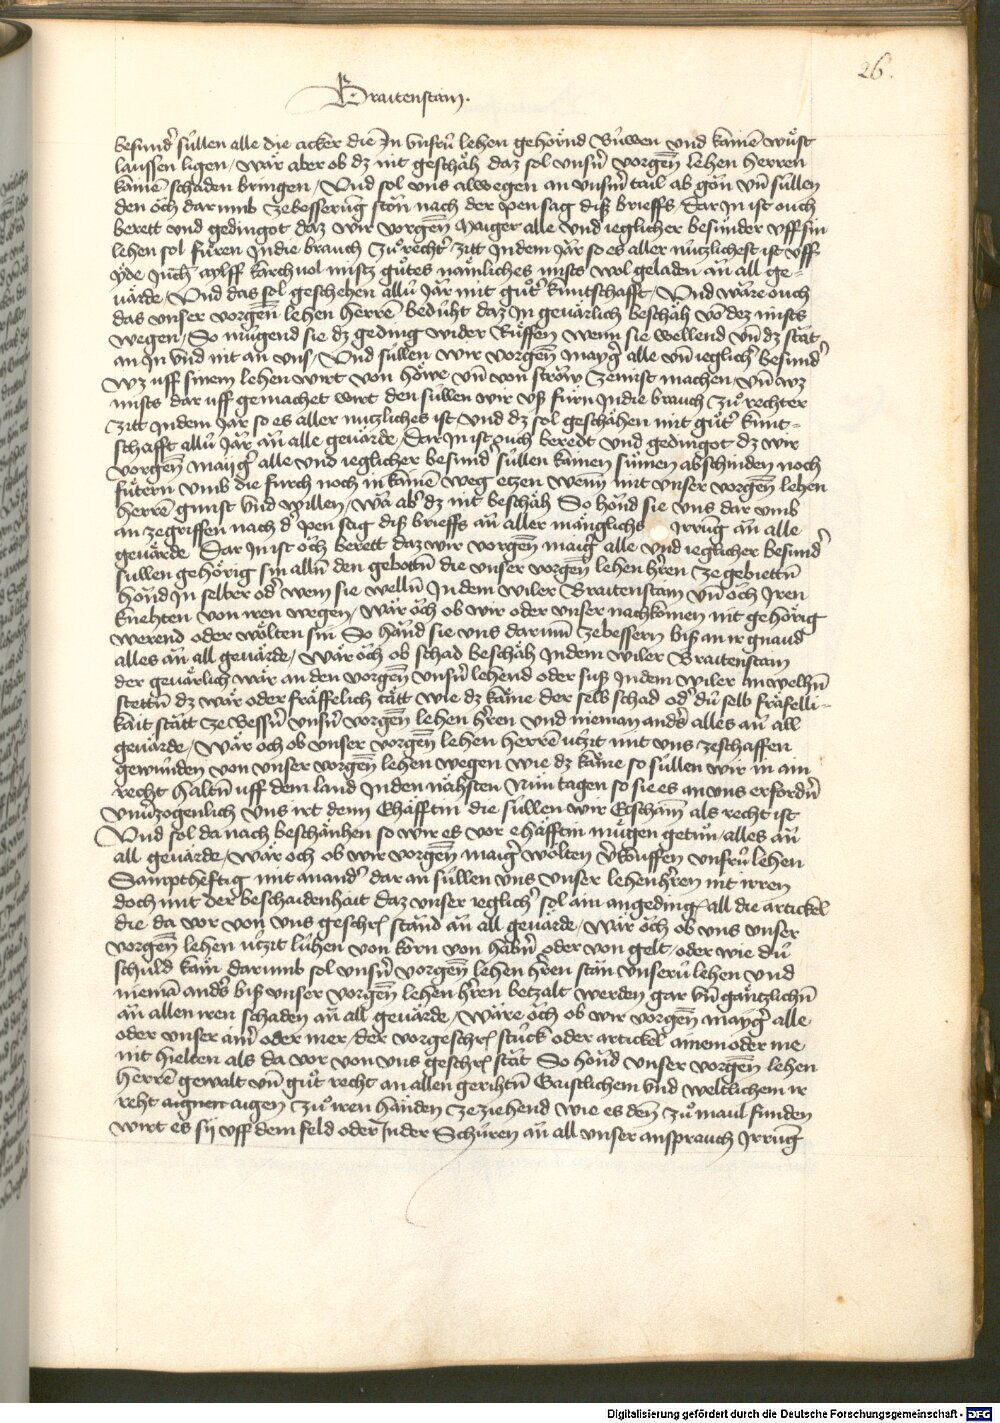 26.
Braitenstain.
besund'̄ súllen alle die äcker die Jn vnsrū lehen gehörnd Buwen vnd kainē wuͤst
laussen ligen / wär aber ob dz nit geschäh daz sol vnsn̄ vorgen̄ lehen herren
kainē schaden bringen / Vnd sol vns alwegen an vnsm̄ tail ab gän vn̄ süllen
den öch dar vmb zebesserūg stän nach der pen sag diß brieffs / Dar Jn ist ouch
berett vnd gedingot daz wir vorgen̄ Maiger alle vnd ieglicher besunder vff sin
lehen sol fuͤren Jn die brauch Zuͦ recht' zitt Jn dem Jar so es aller nutzlichest ist vff
yde Juch aylff karch vol mistz guͦtes namliches mists wol geladen an̄ all ge=
uärde / Vnd das sol geschehen allū Jar mit guͦt' kuntschafft / Vnd wäre ouch
das vnser vorgen̄ lehen herrē beduͤht daz Jn geuärlich beschäh vō dez mists
wegen / So mügend sie dz geding wider Ruͤffen wenn sie wellend vn̄ dz stät
an Jn vnd nit an vns / Vnd süllen wir vorgen̄ mayg' alle vn̄ ieglich' besund'
wz vff sinem lehen wirt von höwe vn̄ von ströw zemist machen / vn̄ wz
mists dar vff gemachet wirt den süllen wir vß fuͤrn Jn die brauch zuͦ rechter
zitt Jn dem Jar so es aller nutzliches ist vnd dz sol geschähen mit guͦt' kunt=
schafft allū Jar an̄ alle geuärde / Dar Jn ist ouch beredt vnd gedingot dz wir
vorgen̄ mayg' alle vnd ieglicher besund' süllen kainen suͤmen abschinden noch
fuͤtern vmb die furch noch in kainē weg etzen wenn mit vnser vorgen̄ lehen
herrē gunst vnd willen / wä ab' dz nit beschäh So hond sie vns dar vmb
an zegriffen nach d' pen sag diß brieffs an̄ aller mänglichs Jrrūg an̄ alle
geuärde Dar Jn ist öch berett daz wir vorgen̄ maig' alle vnd ieglicher besund'
süllen gehörig sin allū den gebottn̄ die vnser vorgen̄ lehen h'ren ze gebiettn̄
hond Jn selber od' wem sie welln̄ Jn dem wiler Braitenstain vn̄ öch Jren
knehten von iren wegen / wär öch ob wir oder vnser nachkomen nit gehörig
werend oder wölten sin So hand sie vns darum̄ zebessern biß an ir gnaud
alles an̄ all geuärde / wär öch ob schad beschäh Jn dem wiler Braitenstain
der geuärlich wär an den vorgen̄ vnsn̄ lehend oder suß Jn dem wiler an welhn̄
stettn̄ dz wär oder fräffelich tätt wie dz käme der selb schad od' dū selb fräfelli=
kait stätt ze bessn̄ vnsn̄ vorgen̄ lehen h'ren vnd nieman and's alles an̄ all
geuärde / wär öch ob vnser vorgen̄ lehen herrē ützit mit vns zeschaffen
gewunden von vnser vorgen̄ lehen wegen wie dz käme so süllen wir in ain
recht haltn̄ vff dem land Jn den nähsten Nün tagen so sie es an vns erfordn̄
vnu'zogenlich Vns irt denn Ehafftin die süllen wir Erschain̄ als recht ist
Vnd sol da nach beschänhen so wir es vor ehäfftin mügen getuͦn / alles an̄
all geuärde / wär öch ob wir vorgen̄ maig' wölten v'kouffen vnsrū lehen
Samptheftig mit anand' dar an süllen vns vnser lehen h'ren nit irren
doch mit der beschaidenhait daz vnser ieglich' sol ain angeding all die artickel
die da vor von vns geschr ständ an̄ all geuärde / wär öch ob vns vnser
vorgen̄ lehen ützit lühen von korn von habn̄ oder von gelt / oder wie dū
schuld käm dar vmb sol vnsn̄ vorgen̄ lehen h'ren stän vnserū lehen vnd
niemā and's biß vnser vorgen̄ lehen h'ren betzalt werden gar vn̄ gäntzlichn̄
an̄ allen iren schaden an̄ all geuärde / wäre öch ob wir vorgen̄ mayg' alle
oder vnser ain' oder mer / der vorgeschr stuck oder artickel ainem oder me
nit hielten als da vor von vns geschr stät So hond vnser vorgen̄ lehen
herrē gewalt vn̄ guͦt recht an allen gerihtn̄ Gaistlichem vnd weltlichem ir
reht aignen aigen zuͦ iren handen ze ziehend wie es den̄ zuͦ maul funden
wirt es sy vff dem feld oder Jn der Schüren an̄ all vnser ansprauch Jrrūg
Digitalisierung gefördert durch die Deutsche Forschungsgemeinschaft - DFG